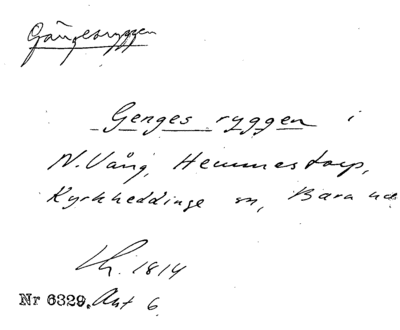 Gängesryggen
Genges ryggen i
N. Vång, Hemmestorp,
Kyrkheddinge sn, Bara hd
Lh. 1814
Nr 6329. Akt 6